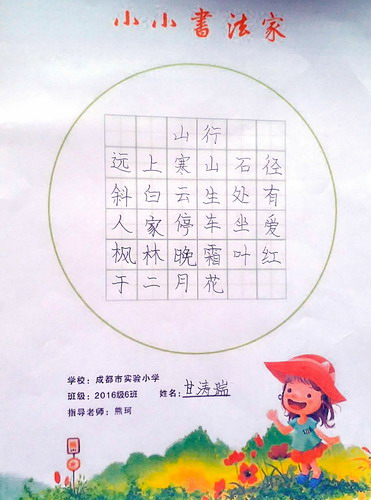 小小書法家
山行
远上寒山石径
斜白云生处有
人家停车坐爱
枫林晚霜叶红
于二月花
学校：成都市实验小学
班级：2016级6班 姓名：甘涛瑞
指导老师：熊珂